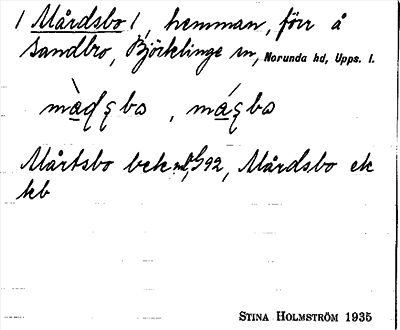 / Mårdsbo /, hemman, förr å
Sandbro, Björklinge sn, Norunda hd, Upps. l.
màḍʂbo, máʂbo
Mårtsbo bek 92, Mårdsbo ek
kb
STINA HOLMSTRÖM 1935